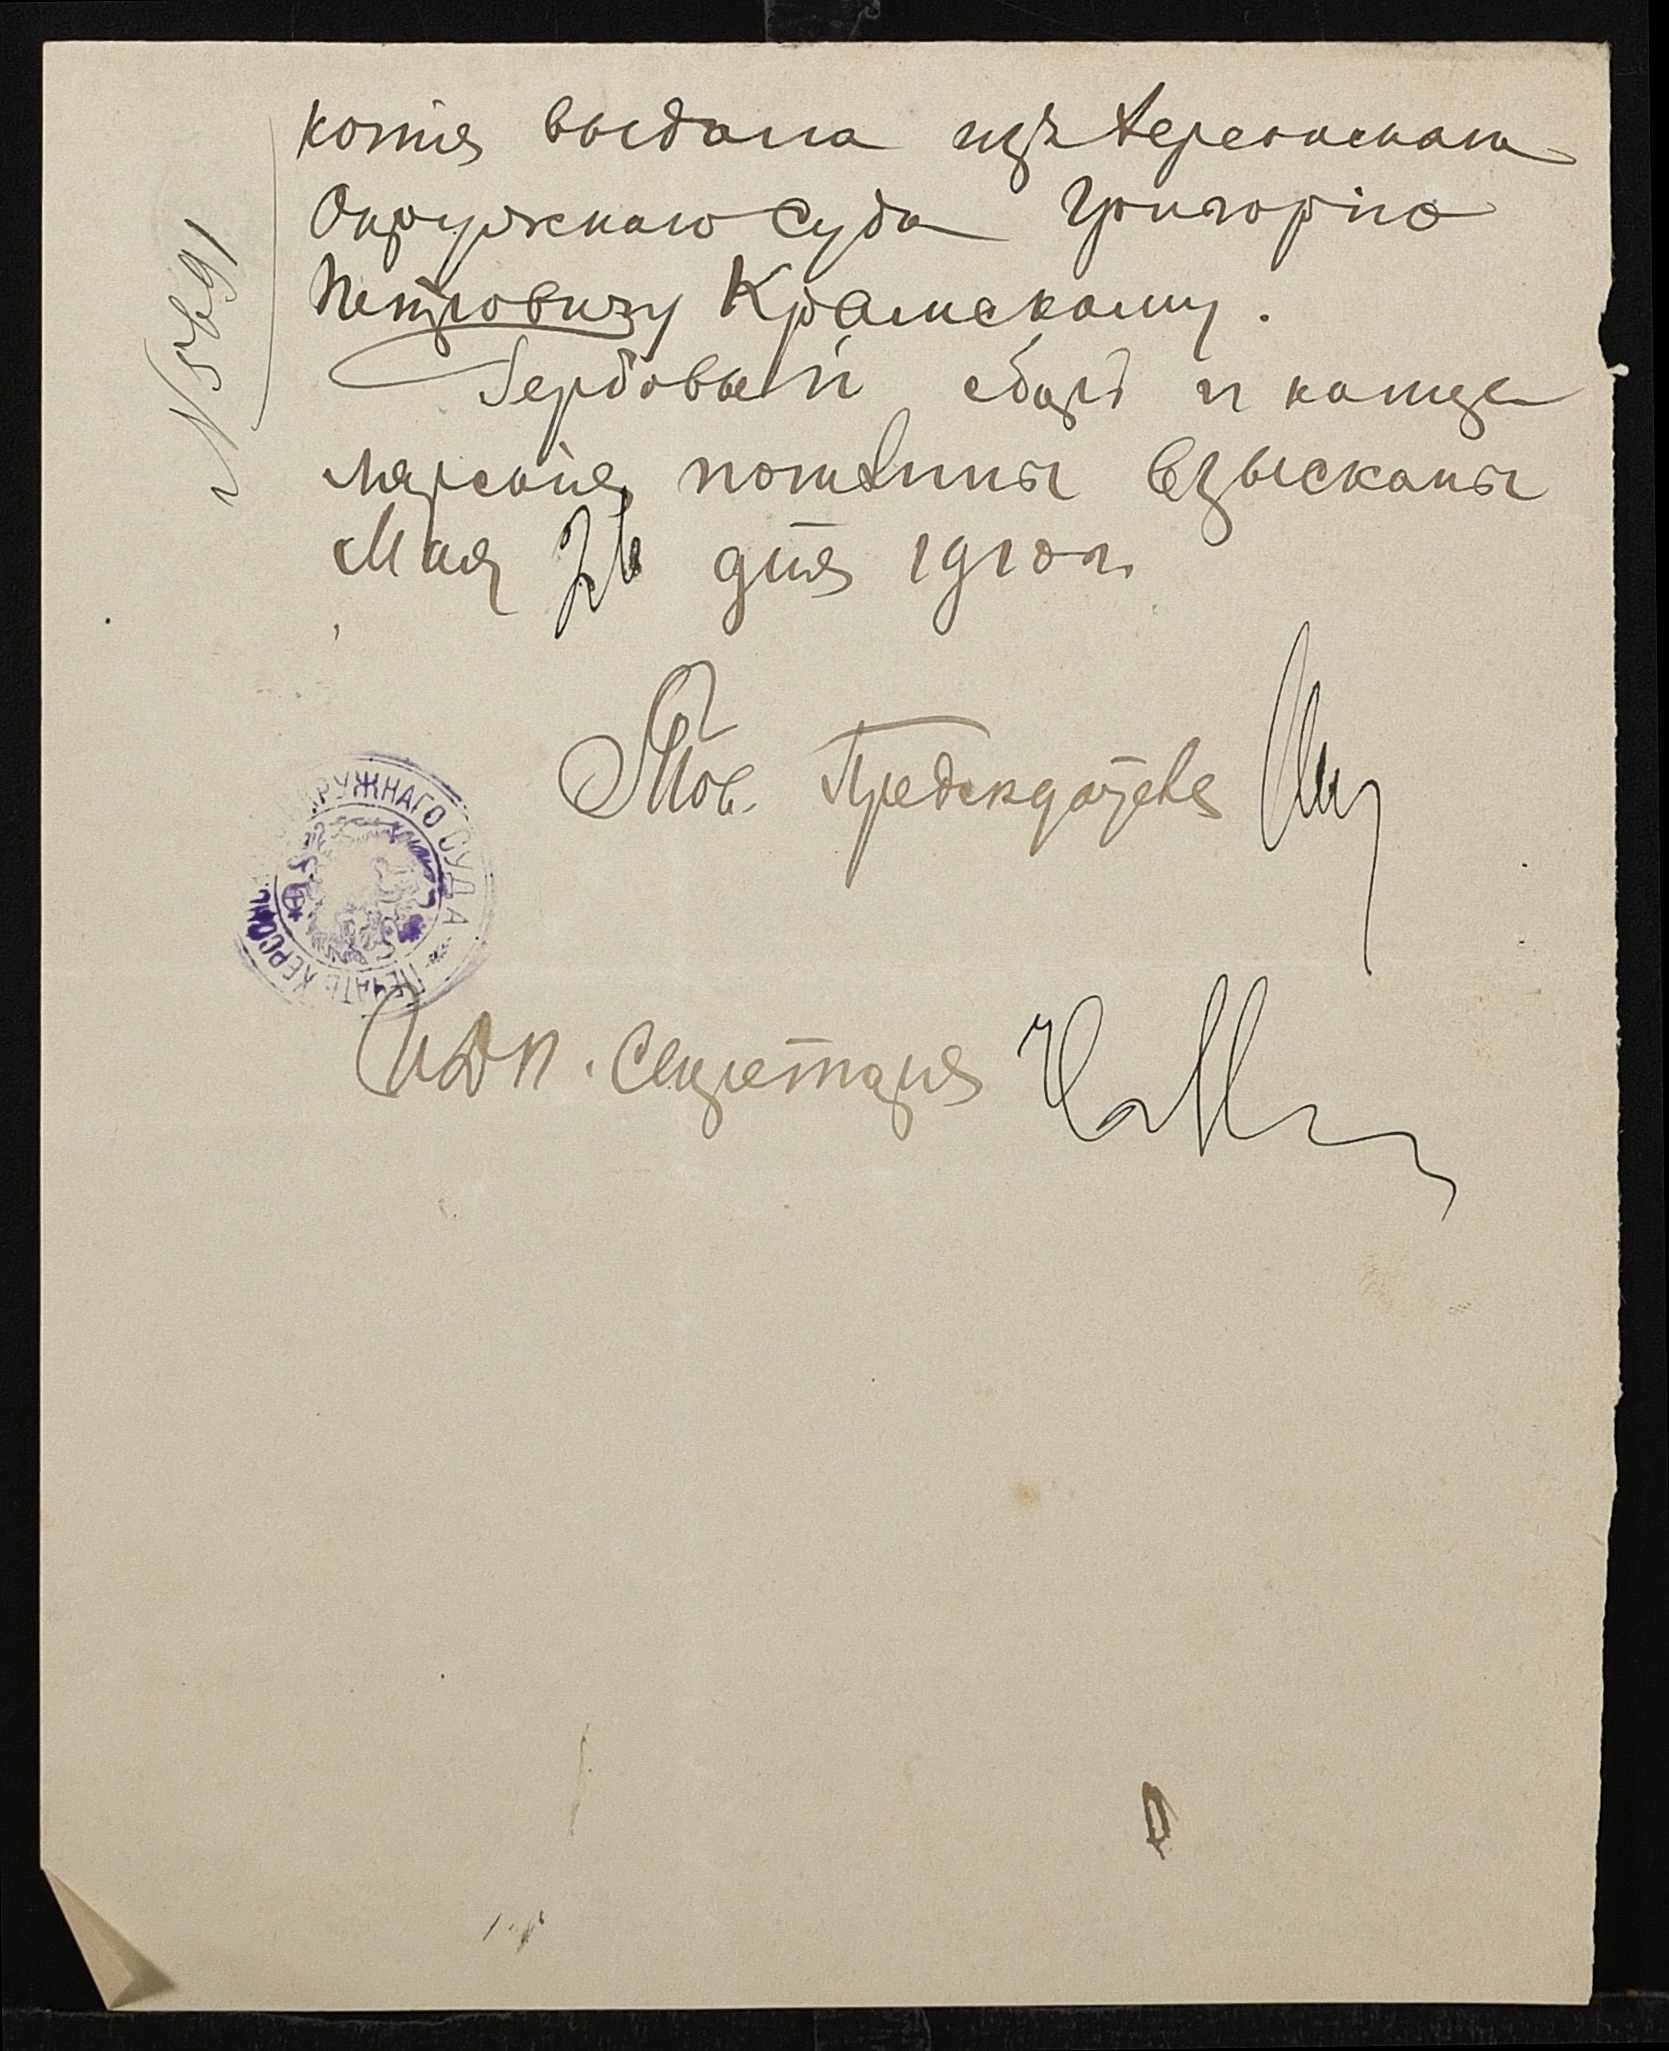 копія выдана изъ Херсонскаго
Окружнаго Суда Григорію
Петровичу Крамскому.
Гербовый сборъ и канце
лярскія пошлины взысканы
Мая 26 дня 1910 г.
№ 5691
Тов. Предсѣдателя
ПЕЧАТЬ ХЕРСОНСКАГО ОКРУЖНАГО СУДА
И.д. п. Секретаря